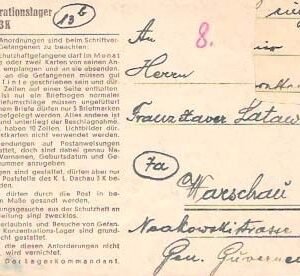 entrationslager
3K
13b
Anordnungen sind beim Schriftver-
Gefangenen zu beachten:
chutzhaftgefangene darf im Monat
oder zwei Karten von seinen An-
empfangen und an sie absenden.
an die Gefangenen müssen gut
Tinte geschrieben sein und dür-
Zeilen auf einer Seite enthalten.
ist nur ein Briefbogen normaler
riefumschläge müssen ungefüttert
inem Briefe dürfen nur 5 Briefmarken
beigelegt werden. Alles andere ist
und unterliegt der Beschlagnahme.
haben 10 Zeilen. Lichtbilder dür-
tkarten nicht verwendet werden.
endungen auf Postanweisungen
tattet, doch sind dabei genau Na-
Vornamen, Geburtsdatum und Ge-
nummer anzugeben
gen sind gestattet, dürfen aber nur
Poststelle des K. L. Dachau 3 K be-
den.
dürfen durch die Post in be-
m Maße gesandt werden.
ungsgesuche aus der Schutzhaft an
tleitung sind zwecklos.
erlaubnis und Besuche von Gefan-
Konzentrations-Lager sind grund-
icht gestattet.
die diesen Anforderungen nicht
verden nicht vermittelt.
Der Lagerkommandant.
An
8.
Herrn
Franz
7a
Warschau
Gen. Guverne